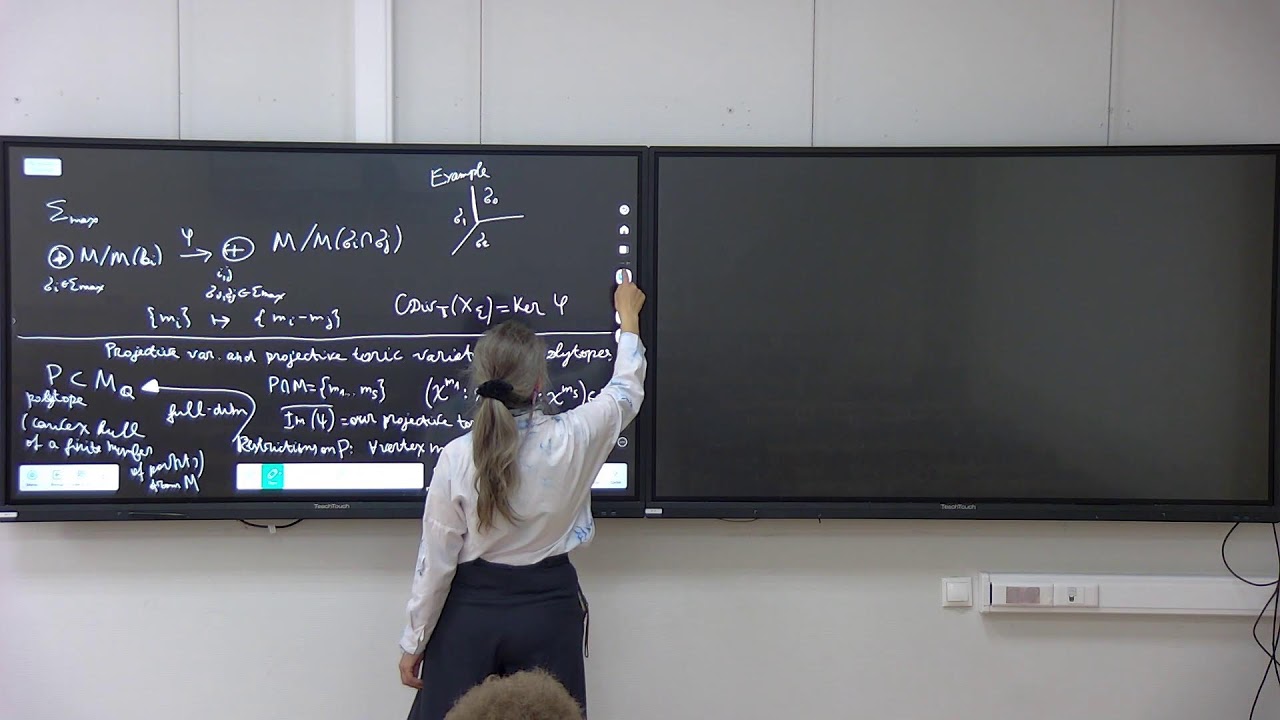 Example
Σmax
σ0
σ1
σ2
⊕ M/M(σi) φ→ ⊕ M/M(σi∩σj)
σi∈Σmax
i,j
σi,σj∈Σmax
{mi} ↦ {mi-mj}
CDivT(XΣ)=Ker φ
Projective var. and projective toric
P⊂MQ
polytope
(convex hull
of a finite number
of points
from M
full-dim
P∩M={m1...ms}
(χ^m1:
χ^ms)
Im(ψ)=our projective
Restriction on P: ∀vertex
TeachTouch
TeachTouch